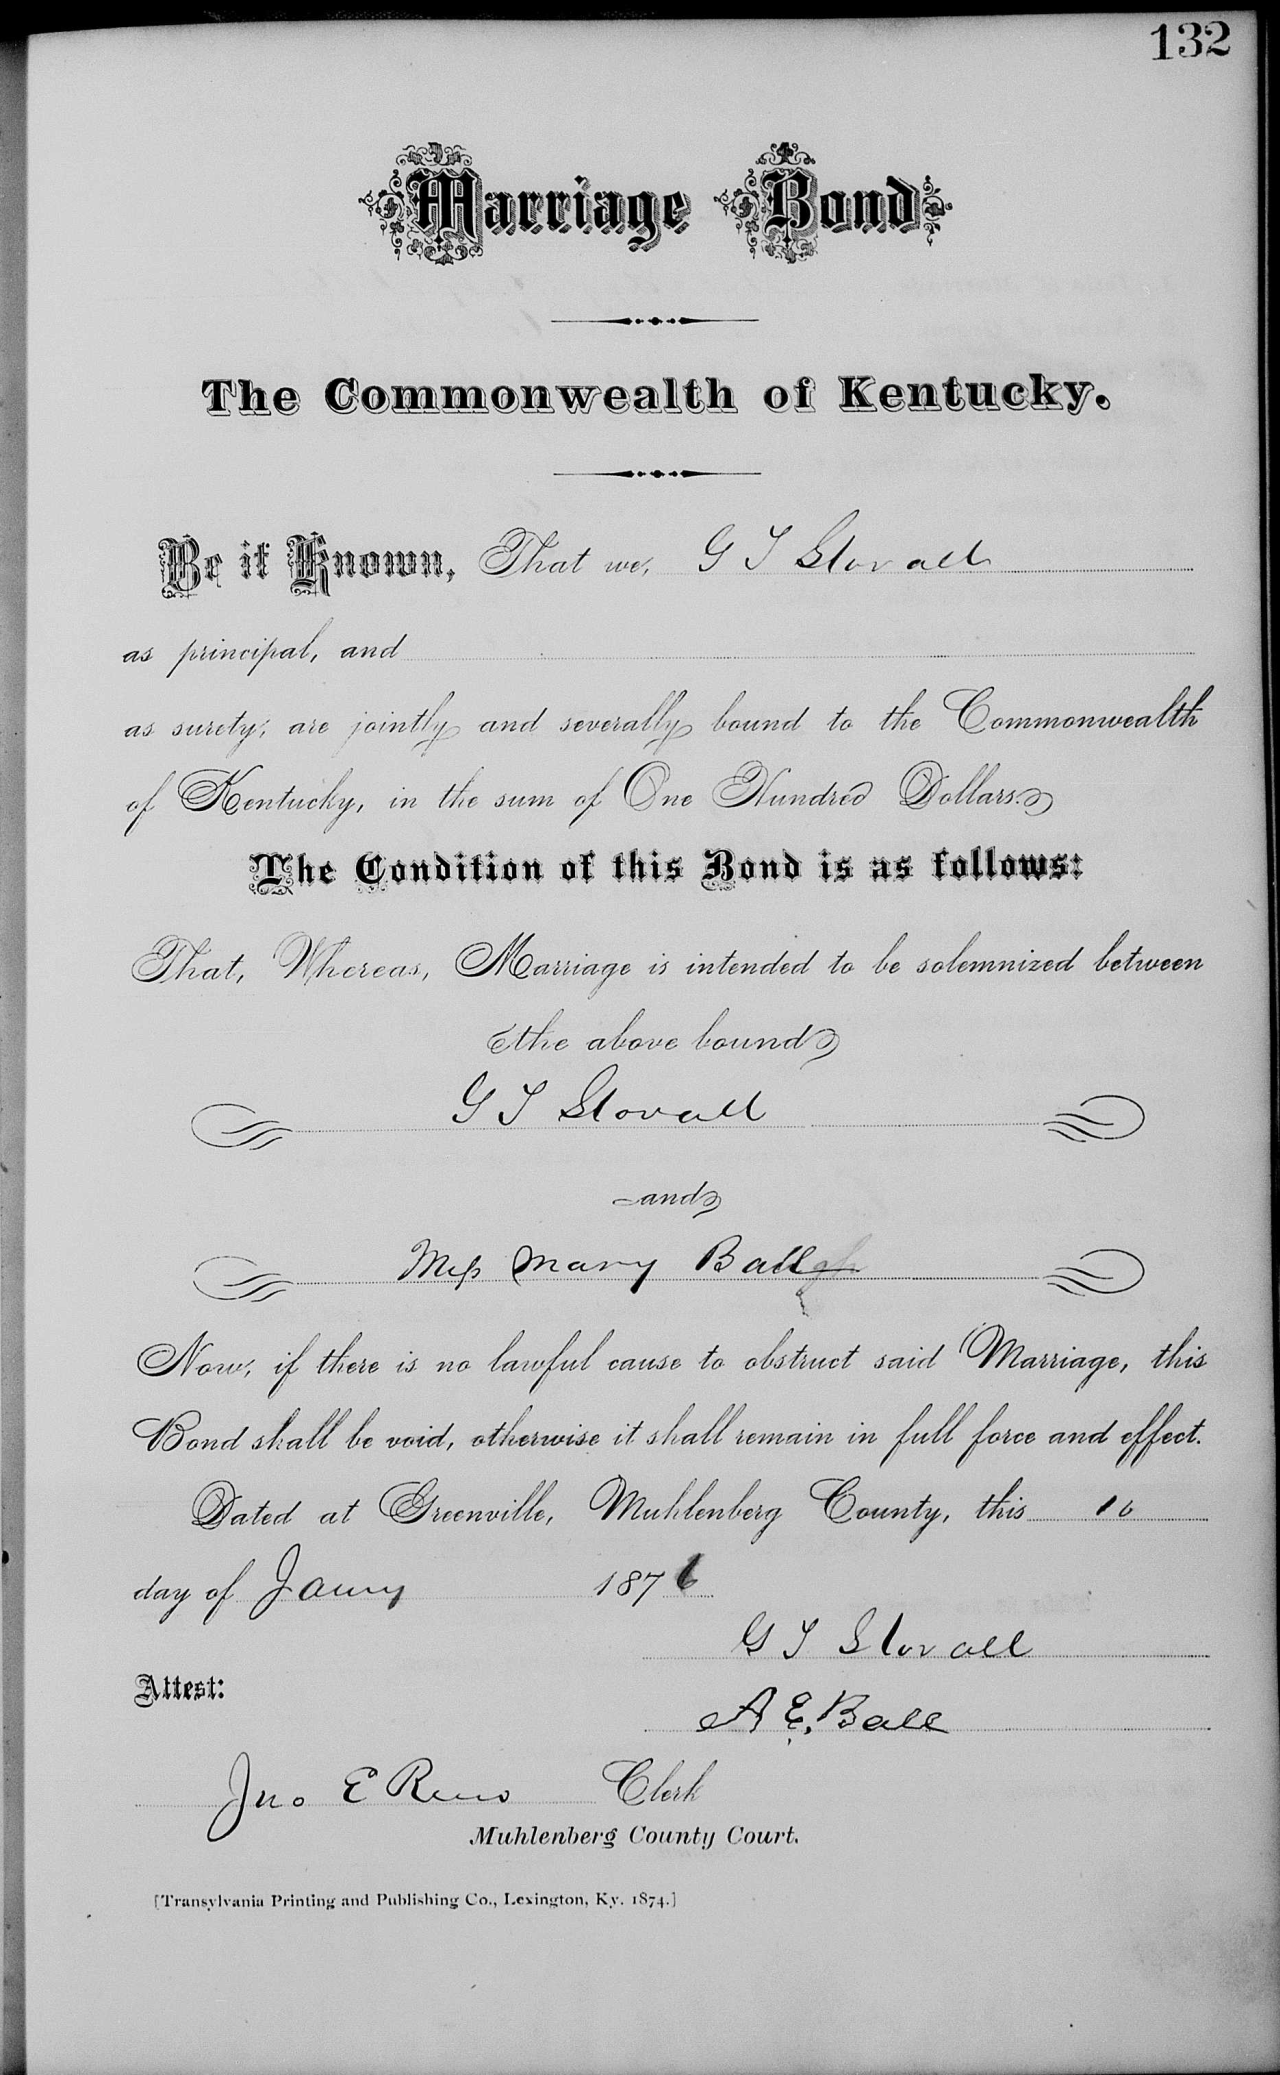 132
Marriage Bond
The Commonwealth of Kentucky.
Be it Known, That we, G T Stovall
as principal, and
as surety, are jointly and severally bound to the Commonwealth
of Kentucky, in the sum of One Hundred Dollars.
The Condition of this Bond is as follows:
That, Whereas, Marriage is intended to be solemnized between
the above bound
G T Stovall
and
Miss Mary Ball
Now, if there is no lawful cause to obstruct said Marriage, this
Bond shall be void, otherwise it shall remain in full force and effect.
Dated at Greenville, Muhlenberg County, this 10
day of Jany 1876
G T Stovall
Attest:
A E. Ball
Jno E Reno Clerk
Muhlenberg County Court.
[Transylvania Printing and Publishing Co., Lexington, Ky. 1874.]